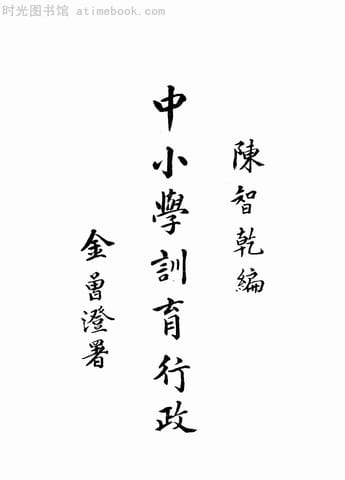 时光图书馆 atimebook.com
陳智乾編
中小學訓育行政
金曾澄署